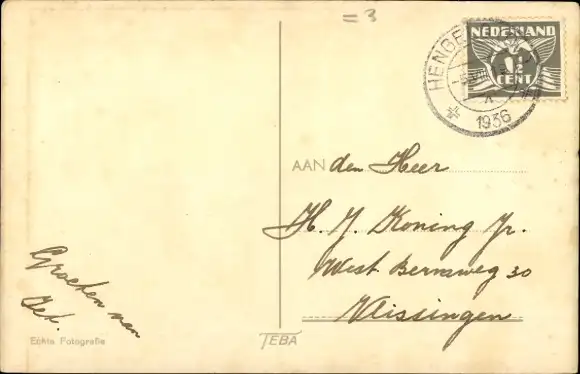 = 3
NEDERLAND
1½
CENT
HENGE
1936
AAN den Heer
H. J. Koning Jr.
West. Bermweg 30
Vlissingen
Groeten van
Jet.
Echte Fotografie
TEBA